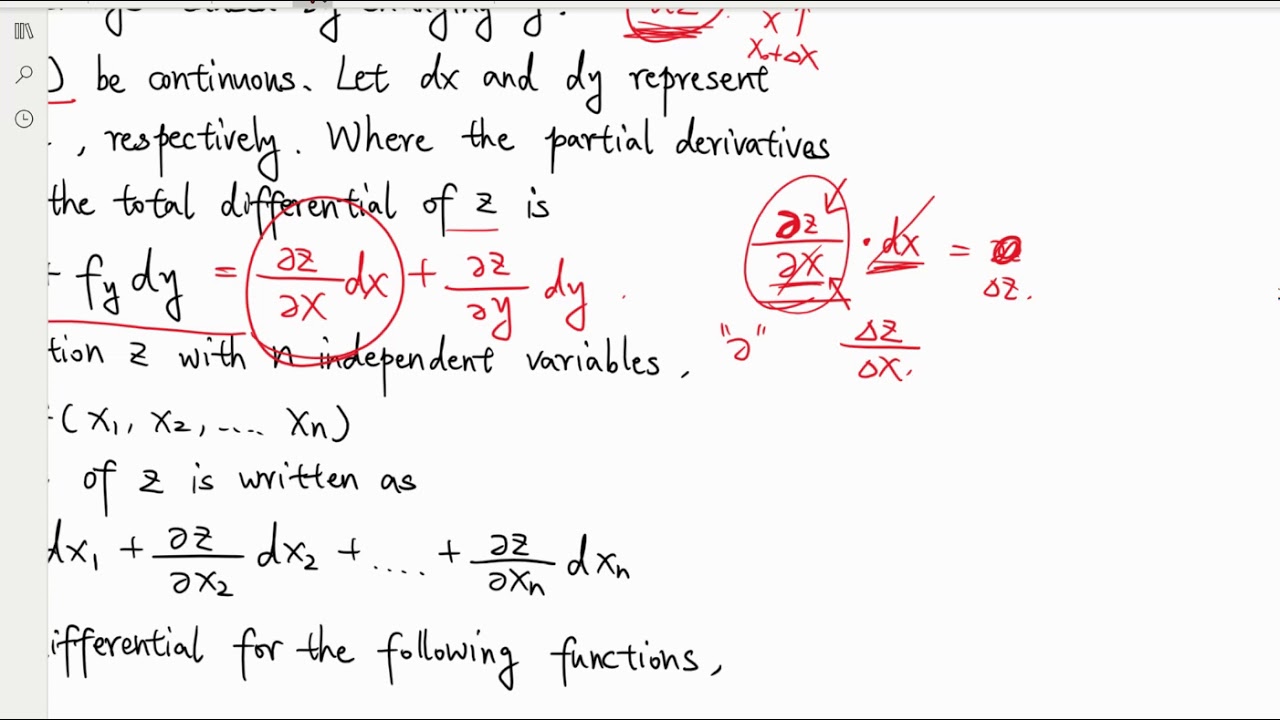 by changing y.
x ↑
x₀+Δx
) be continuous. Let dx and dy represent
, respectively. Where the partial derivatives
the total differential of z is
+ fy dy = ∂z/∂x dx + ∂z/∂y dy .
∂z/∂x · dx =
Δz.
"∂" Δz/Δx.
tion z with n independent variables ,
(x₁, x₂, .... xn)
of z is written as
dx₁ + ∂z/∂x₂ dx₂ + .... + ∂z/∂xn dxn
ifferential for the following functions,